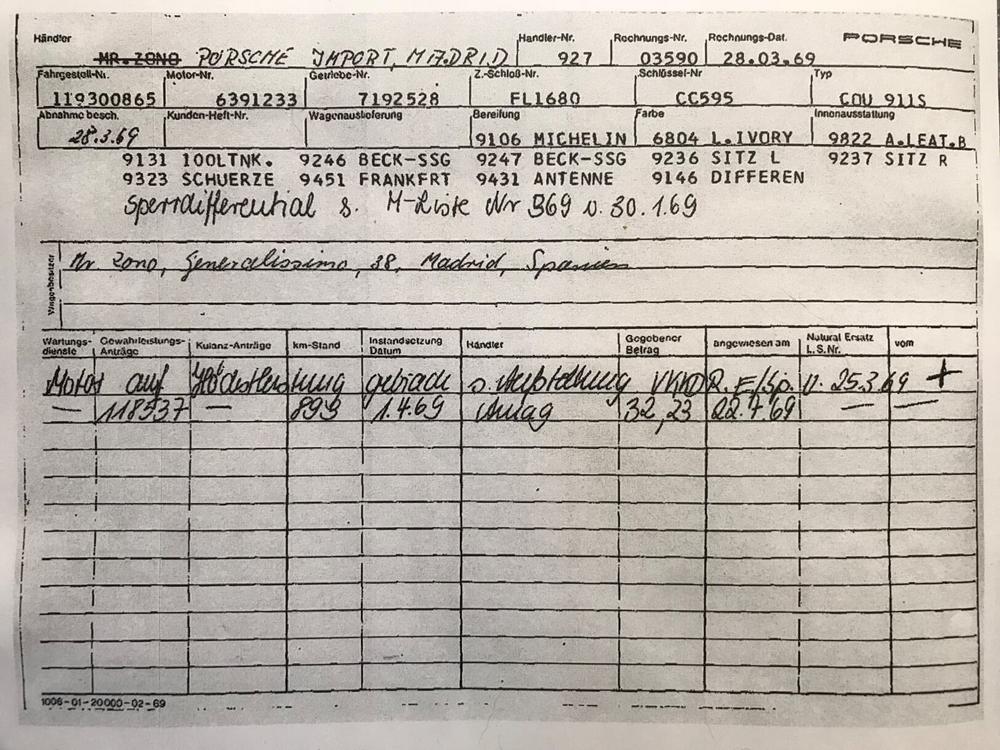 Händler Händler-Nr. Rechnungs-Nr. Rechnungs-Dat. PORSCHE
MR. ZONO PORSCHE IMPORT, MADRID 927 03590 28.03.69
Fahrgestell-Nr. Motor-Nr. Getriebe-Nr. Z.-Schloß-Nr. Schlüssel-Nr Typ
119300865 6391233 7192528 FL1680 CC595 COU 911S
Abnahme besch. Kunden-Heft-Nr. Wagenauslieferung Bereifung Farbe Innenausstattung
28.3.69 9106 MICHELIN 6804 L.IVORY 9822 A.LEAT.B
9131 100LTNK. 9246 BECK-SSG 9247 BECK-SSG 9236 SITZ L 9237 SITZ R
9323 SCHUERZE 9451 FRANKFRT 9431 ANTENNE 9146 DIFFEREN
Sperrdifferential s. M-Liste Nr 369 v. 30.1.69
Wagenbesitzer
Mr Zono, Generalissimo, 38, Madrid, Spanien
Wartungs-dienste Gewährleistungs-Anträge Kulanz-Anträge km-Stand Instandsetzung Datum Händler Gegebener Betrag angewiesen am Natural Ersatz L.S.Nr. vom
Motor auf Höchstleistung gebracht s. Aufstellung R. E/Sp. v. 25.3.69 +
— 118537 — 893 1.4.69 Amag 32,23 22.7.69 — —
1006-01-20000-02-69